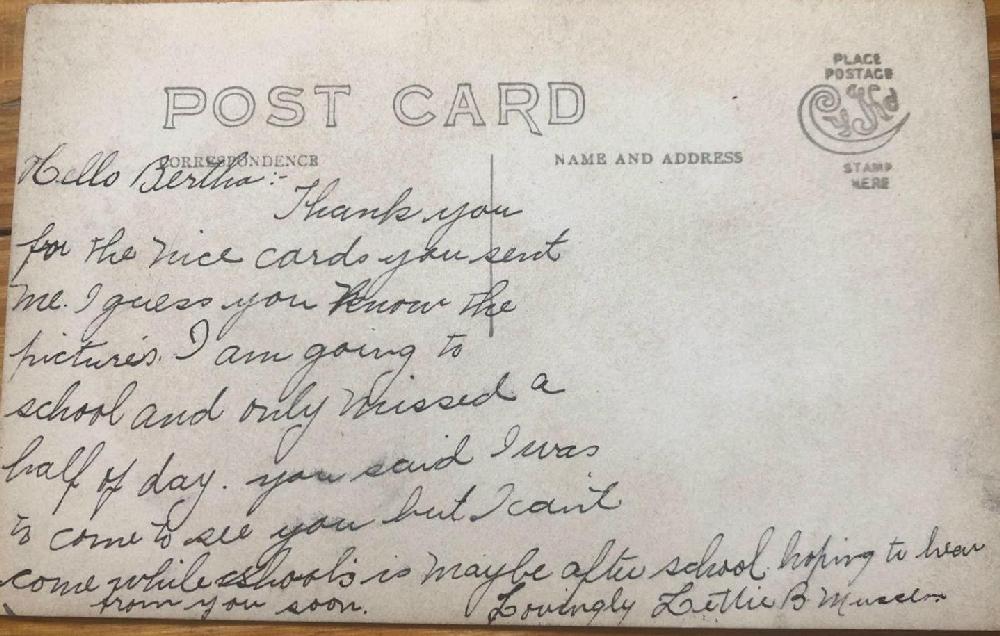 POST CARD
PLACE
POSTAGE
CYKO
STAMP
HERE
CORRESPONDENCE
NAME AND ADDRESS
Hello Bertha:-
Thank you
for the nice cards you sent
me. I guess you know the
pictures. I am going to
school and only missed a
half of day. you said I was
to come to see you but I can't
come while schools is maybe after school. hoping to hear
from you soon.
Lovingly Lettie B